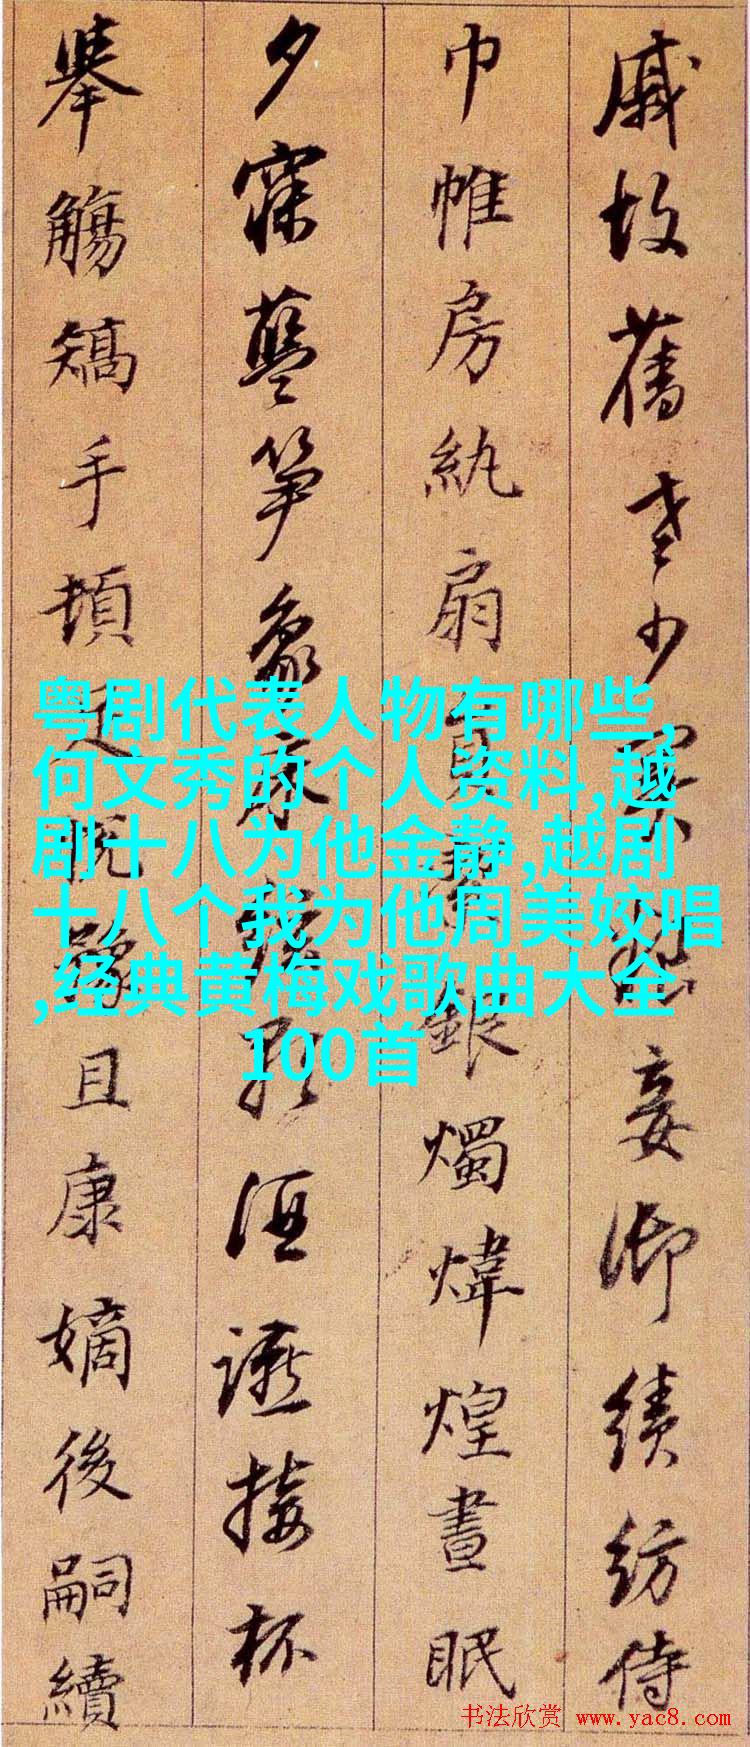 戚故舊老少異粮妾御績紡侍
巾帷房紈扇員潔銀燭煒煌晝眠
夕寐藍笋象床弦歌酒讌接杯
舉觴矯手頓足悅豫且康嫡後嗣續
粤剧代表人物有哪些,
何文秀的个人资料,越
剧十八为他金静,越剧
十八个我为他周美姣唱
,经典黄梅戏歌曲大全
100首
书法欣赏 www.yac8.com